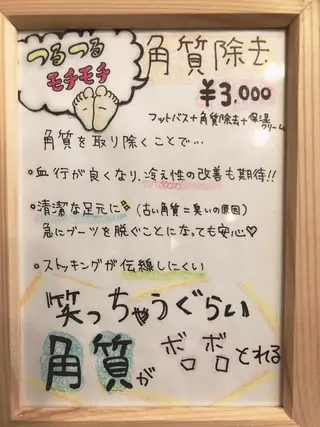 つるつる
モチモチ
角質除去
¥3,000
フットバス+角質除去+保湿クリーム
角質を取り除くことで…
・血行が良くなり、冷え性の改善も期待!!
・清潔な足元に (古い角質=臭いの原因)
急にブーツを脱ぐことになっても安心♡
・ストッキングが伝線しにくい
笑っちゃうぐらい
角質がボロボロとれる